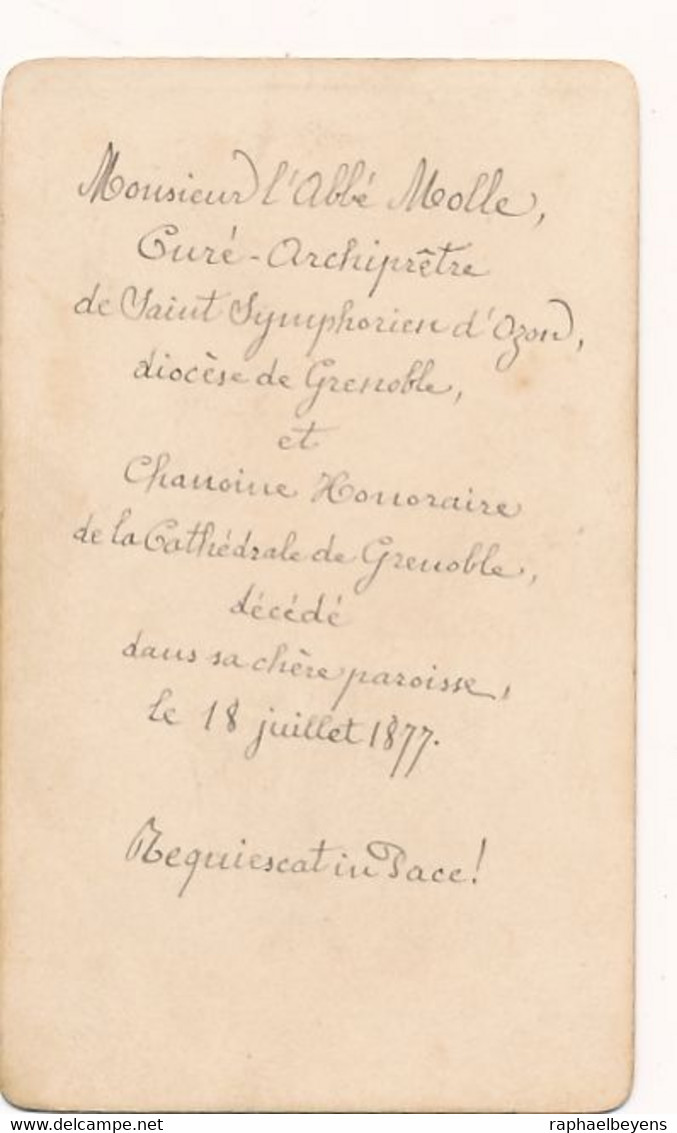 Monsieur l'Abbé Molle,
Curé-Archiprêtre
de Saint Symphorien d'Ozon,
diocèse de Grenoble,
et
Chanoine Honoraire
de la Cathédrale de Grenoble,
décédé
dans sa chère paroisse,
le 18 juillet 1877.
Requiescat in Pace!
www.delcampe.net
raphaelbeyens